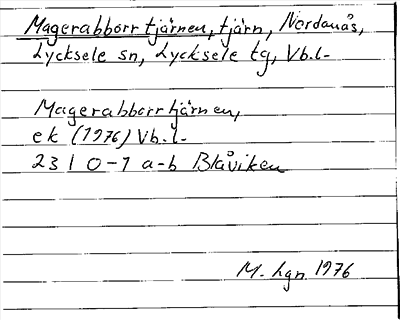 Magerabborrtjärnen, tjärn, Nordanås,
Lycksele sn, Lycksele tg, Vb.l-
Magerabborrtjärnen,
ek (1976) Vb.l-
23 I 0-1 a-b Blåviken
M. Lgn. 1976